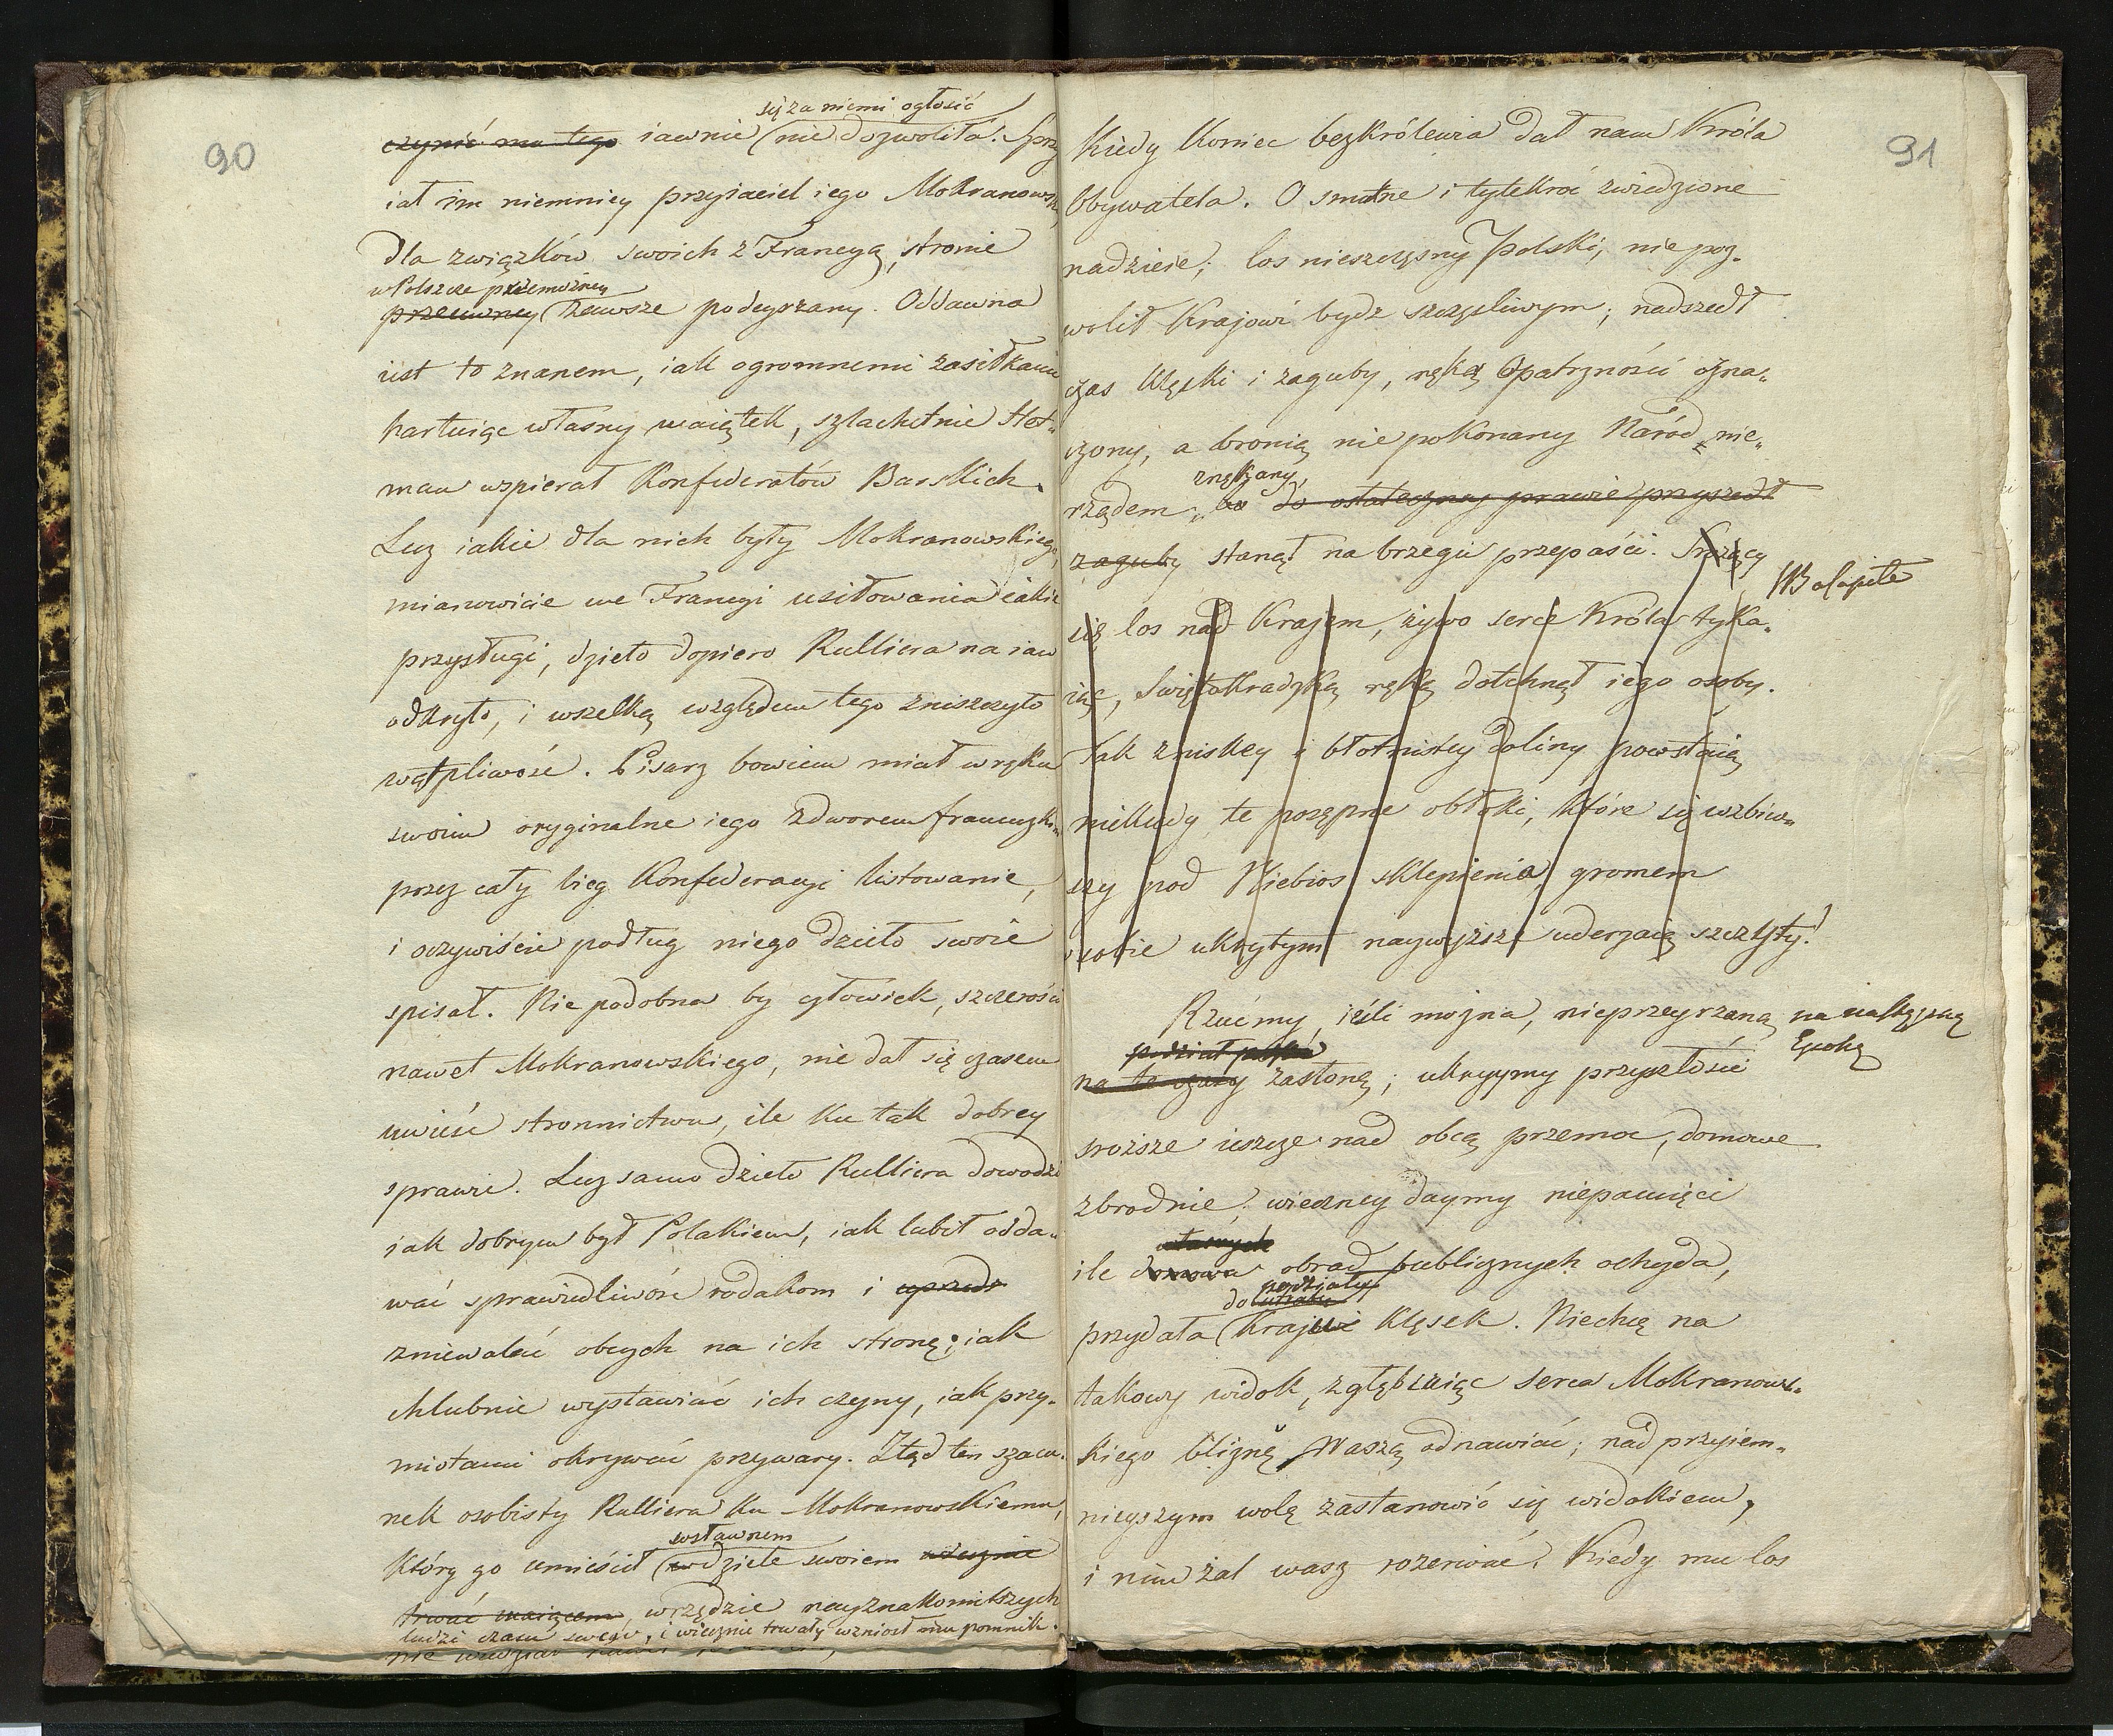 90
się za niemi ogłosić
czynić mu tego iawnie (nie dozwoliła. Sprzy
iał im niemniey przyiaciel iego Mokranowski,
dla związków swoich z Francyą, stronie
w Polszcze przemożney
przeciwney (zawsze podeyrzany. Oddawna
iest to znanem, iak ogromnemi zasiłkami
hartuiąc własny maiątek, szlachetnie Het„
man wspierał Konfederatów Barskich.
Lecz iakie dla nich były Mokranowskiego,
mianowicie we Francyi usiłowania iakie
przysługi, dzieło dopiero Rulliera na iaw
odkryło, i wszelką względem tego zniszczyło
wątpliwość. Pisarz bowiem miał w ręku
swoim oryginalne iego z dworem francuzkim
przez cały bieg Konfederacyi listowanie,
i oczywiście podług niego dzieło swoie
spisał. Nie podobna by człowiek, szczerości
nawet Mokranowskiego, nie dał się czasem
uwieść stronnictwu, ile ku tak dobrey
sprawie. Lecz samo dzieło Rulliera dowodzi
iak dobrym był Polakiem, iak lubił odda„
wać sprawiedliwość rodakom i uprzedz
zniewalać obcych na ich stronę; iak
chlubnie wystawiać ich czyny, iak przy„
miotami okrywać przywary. Ztąd ten szacu„
nek osobisty Rulliera ku Mokranowskiemu,
wsławnem
który go umieścił (w dziele swoiem wiecznie
trwać maiącem, w rzędzie nayznakomitszych
ludzi czasu swego, i wiecznie trwały wzniosł mu pomnik.
91
Kiedy Koniec bezkrólewia dał nam Króla
Obywatela. O smutne i tylekroć zwiedzione
nadzieie; los nieszczęsny Polski, nie poz„
wolił Krajowi bydź szczęsliwym; nadszedł
czas klęski i zaguby, ręką Opatrzności ozna„
czony, a bronią nie pokonany Naród, nie„
znękany,
rządem, do ostateczney prawie przyszedł
zaguby stanął na brzegu przepaści. Srożący
W Kapitle
się los nad Krajem, żywo serce Króla tyka„
iąc, świętokradzką ręką dotchnął iego osoby.
Tak z niskey i błotnistey doliny powstaią
niekiedy te posępne obłoki, które się wzbiw„
szy pod Niebios sklepienia, gromem
w sobie ukrytym naywyższe uderzaią szczyty!
Rzućmy, ieśli można, nieprzeyrzaną na następną
Epokę
podział Polski
na te czasy zasłonę; ukryymy przyszłości
sroższe ieszcze nad obcą przemoc, domowe
zbrodnie; wieczney daymy niepamięci
własnych
ile domowa obrad publicznych ochyda,
podziału
do utraty
przydała (Krajowi klęsek. Niechcę na
takowy widok, zgłębiaiąc serca Mokranows„
kiego bliznę Waszą odnawiać; nad przyiem„
nieyszym wolę zastanowić się widokiem,
i nim żal wasz rozerwać. Kiedy mu los